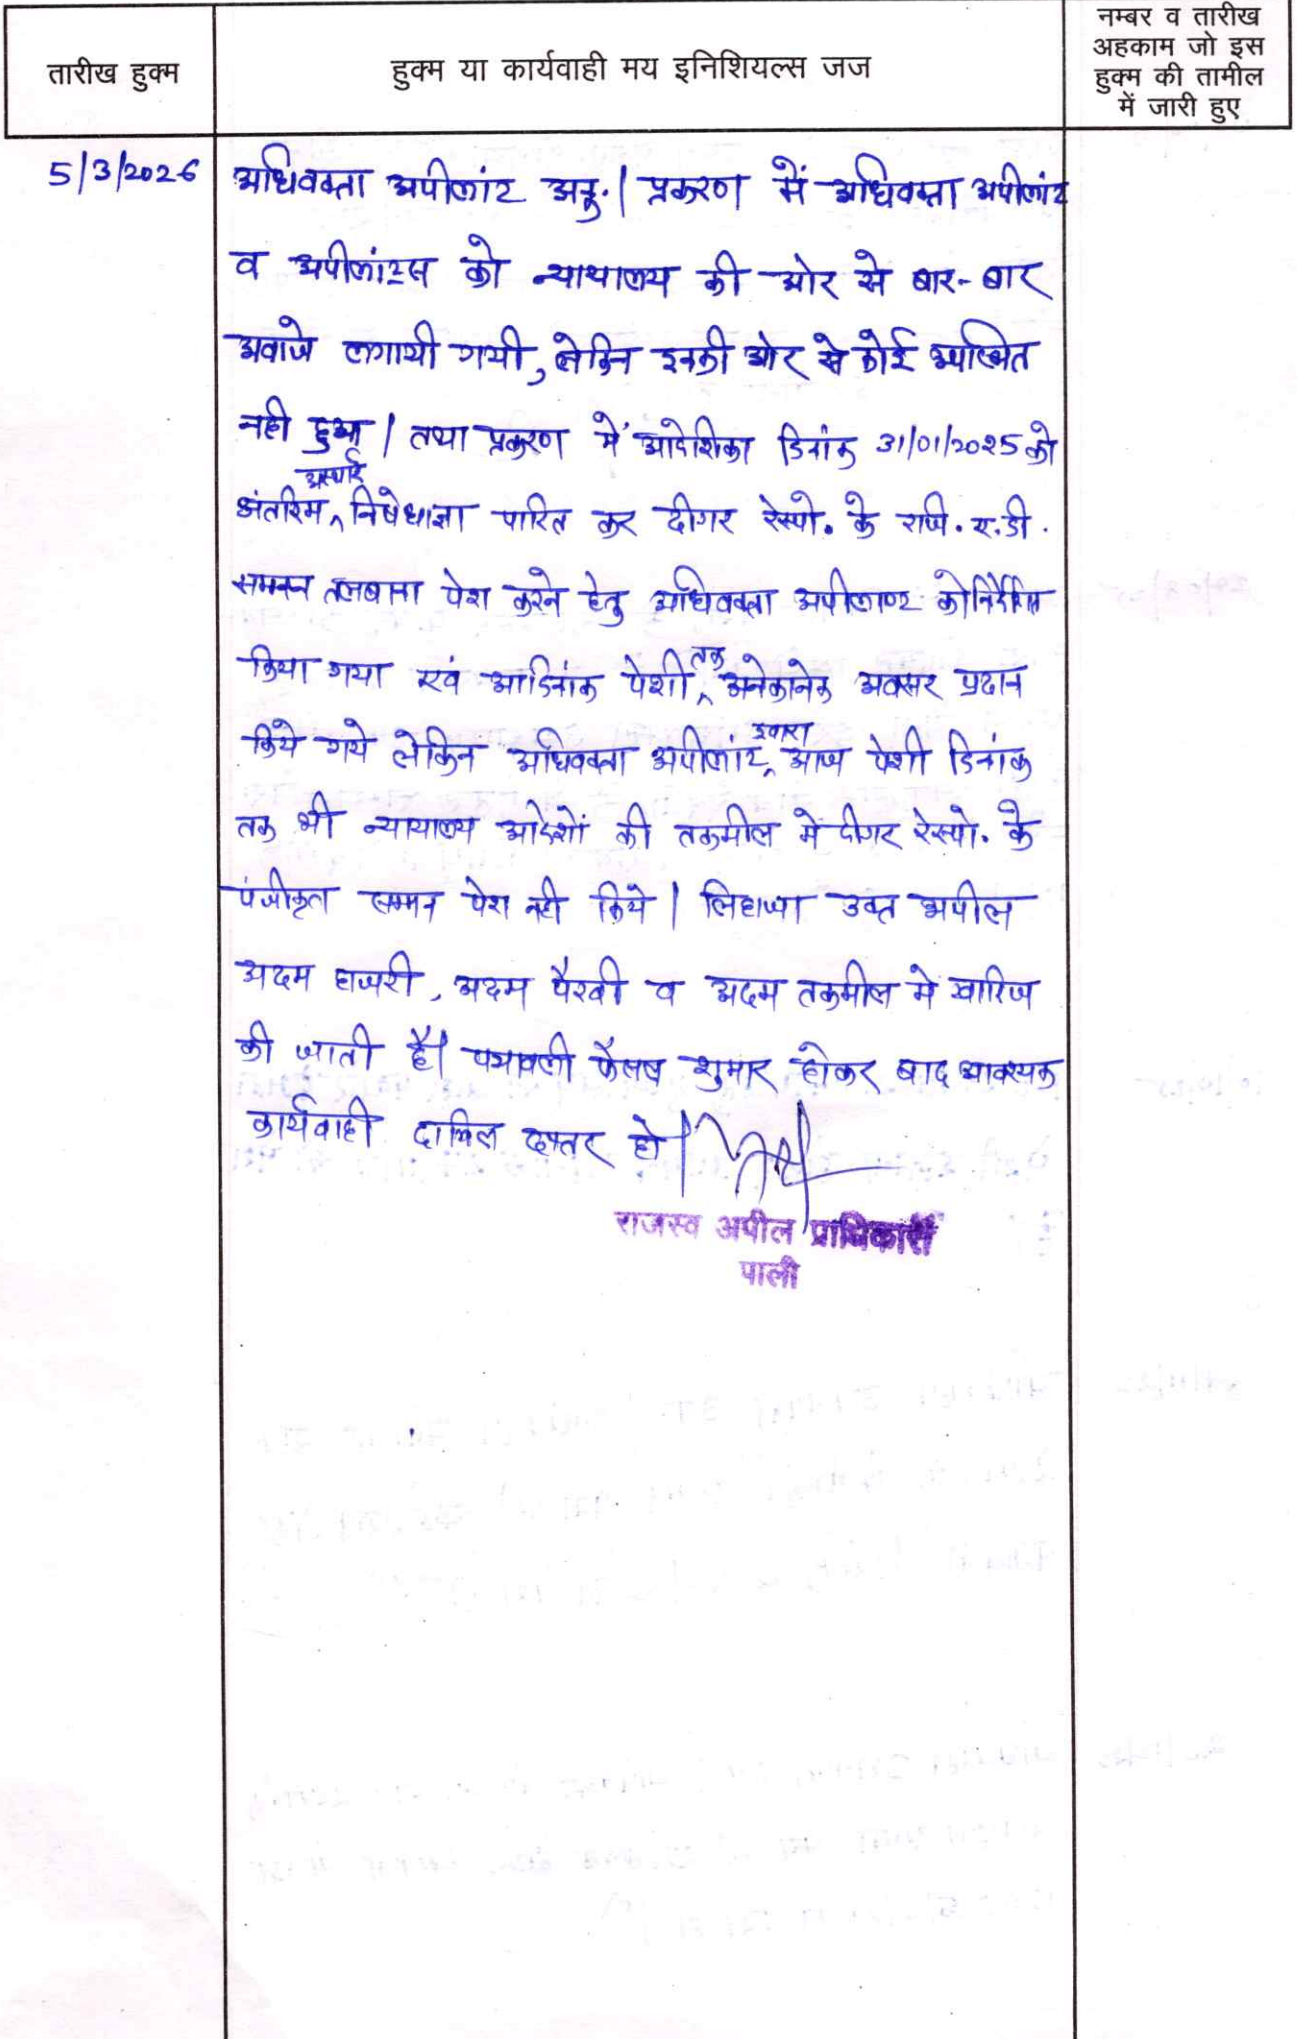 तारीख हुक्म
हुक्म या कार्यवाही मय इनिशियल्स जज
नम्बर व तारीख
अहकाम जो इस
हुक्म की तामील
में जारी हुए
5/3/2026
अधिवक्ता अपीलांट अनु.। प्रकरण में अधिवक्ता अपीलांट
व अपीलांट्स को न्यायालय की ओर से बार-बार
अवाजे लगायी गयी, लेकिन इनकी ओर से कोई उपस्थित
नही हुआ। तथा प्रकरण में आदेशिका दिनांक 31/01/2025 को
अंतरिम अस्थाई निषेधाज्ञा पारित कर दीगर रेस्पो. के राजि. ए.डी.
सम्मन तलबाना पेश करने हेतु अधिवक्ता अपीलाण्ट को निर्देशित
किया गया एवं आदिनांक पेशी तक अनेकानेक अवसर प्रदान
किये गये लेकिन अधिवक्ता अपीलांट द्वारा आज पेशी दिनांक
तक भी न्यायालय आदेशों की तकमील में दीगर रेस्पो. के
पंजीकृत सम्मन पेश नही किये। लिहाजा उक्त अपील
अदम हाजरी, अदम पैरवी व अदम तकमील मे खारिज
की जाती है। पत्रावली फैसल शुमार होकर बाद आवश्यक
कार्यवाही दाखिल दफ्तर हो।
राजस्व अपील प्राधिकारी
पाली